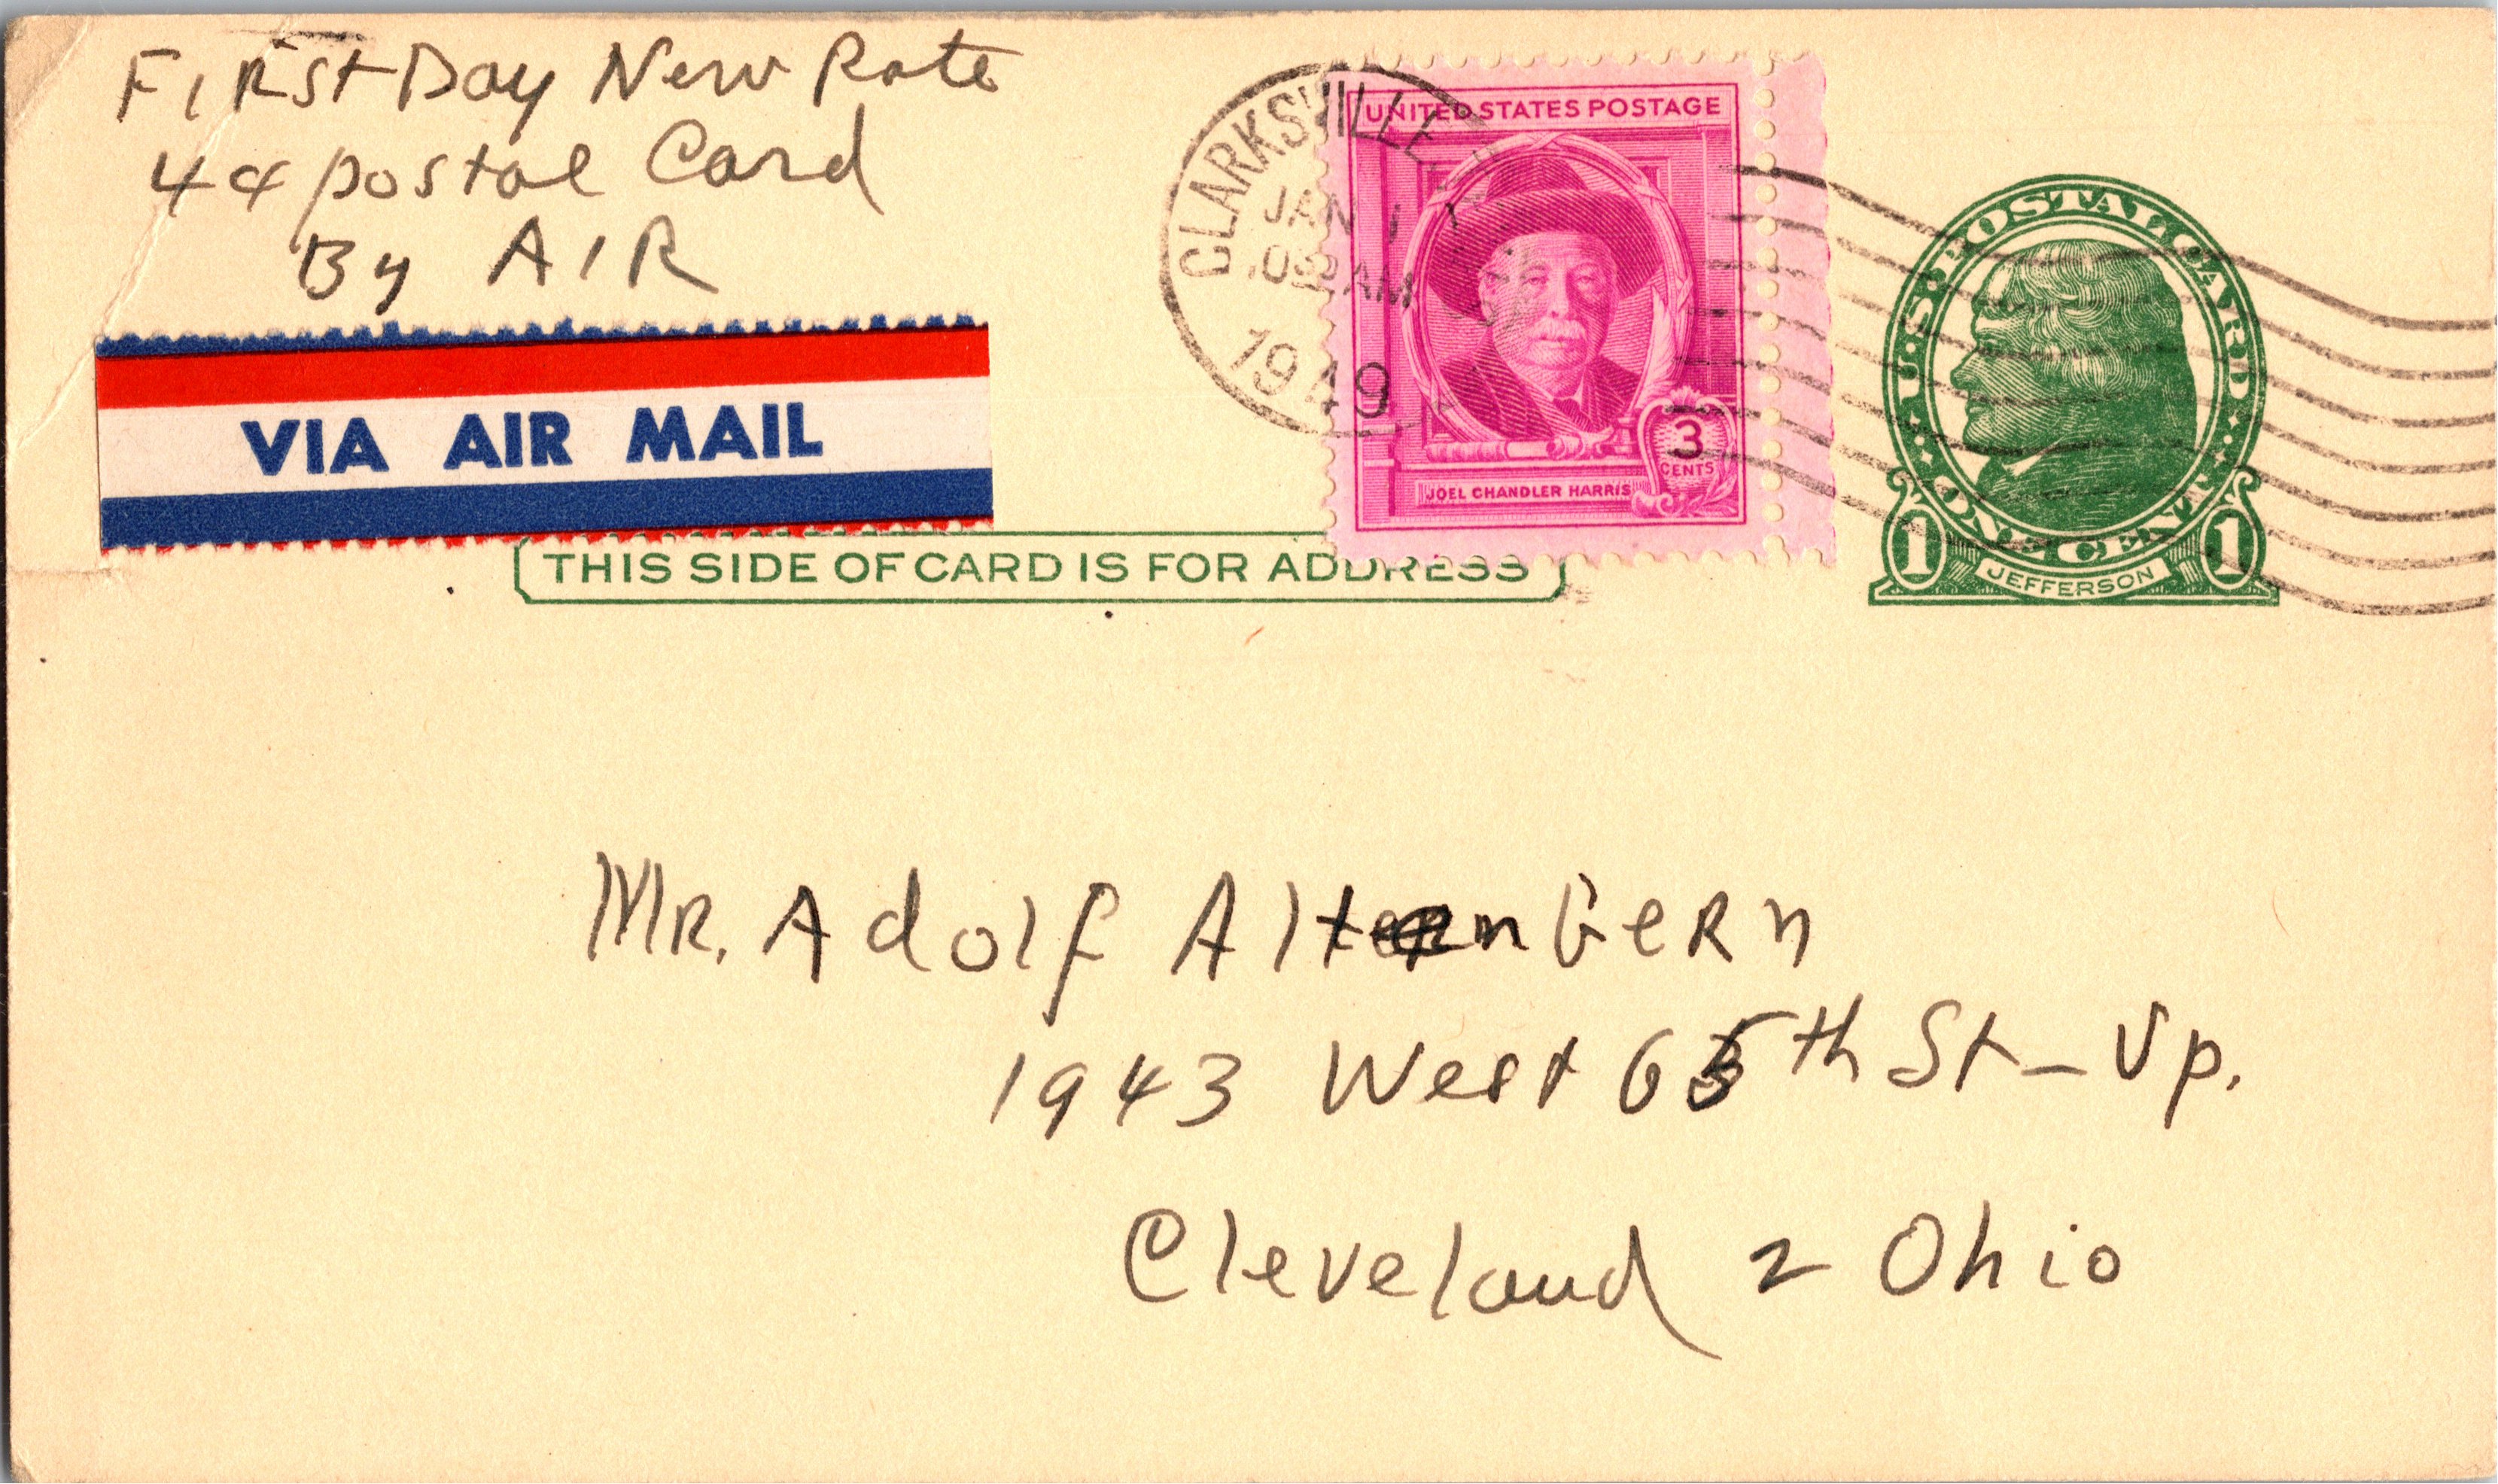 First Day New Rate
4¢ postal Card
By AIR
VIA AIR MAIL
CLARKSVILLE,
JAN 1
AM
1949
UNITED STATES POSTAGE
3
CENTS
JOEL CHANDLER HARRIS
U.S. POSTAL CARD
ONE CENT
1 1
JEFFERSON
THIS SIDE OF CARD IS FOR ADDRESS
MR. Adolf AltenBern
1943 West 65th St - Up.
Cleveland 2 Ohio